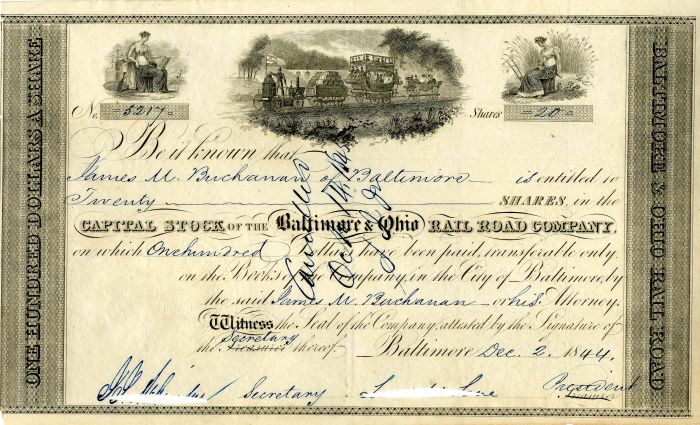 ONE HUNDRED DOLLARS A SHARE
No. 5217
Shares 20
Be it known that
James M. Buchanan of Baltimore is entitled to
Twenty SHARES, in the
CAPITAL STOCK OF THE Baltimore & Ohio RAIL ROAD COMPANY,
on which One hundred Dollars have been paid, transferable only
on the Books of the Company, in the City of Baltimore, by
the said James M. Buchanan or his Attorney.
Witness, the Seal of the Company, attested by the Signature of
the Treasurer Secretary thereof. Baltimore Dec. 2, 1844.
Secretary
President
Treasurer
Cancelled
BALTIMORE & OHIO RAIL ROAD